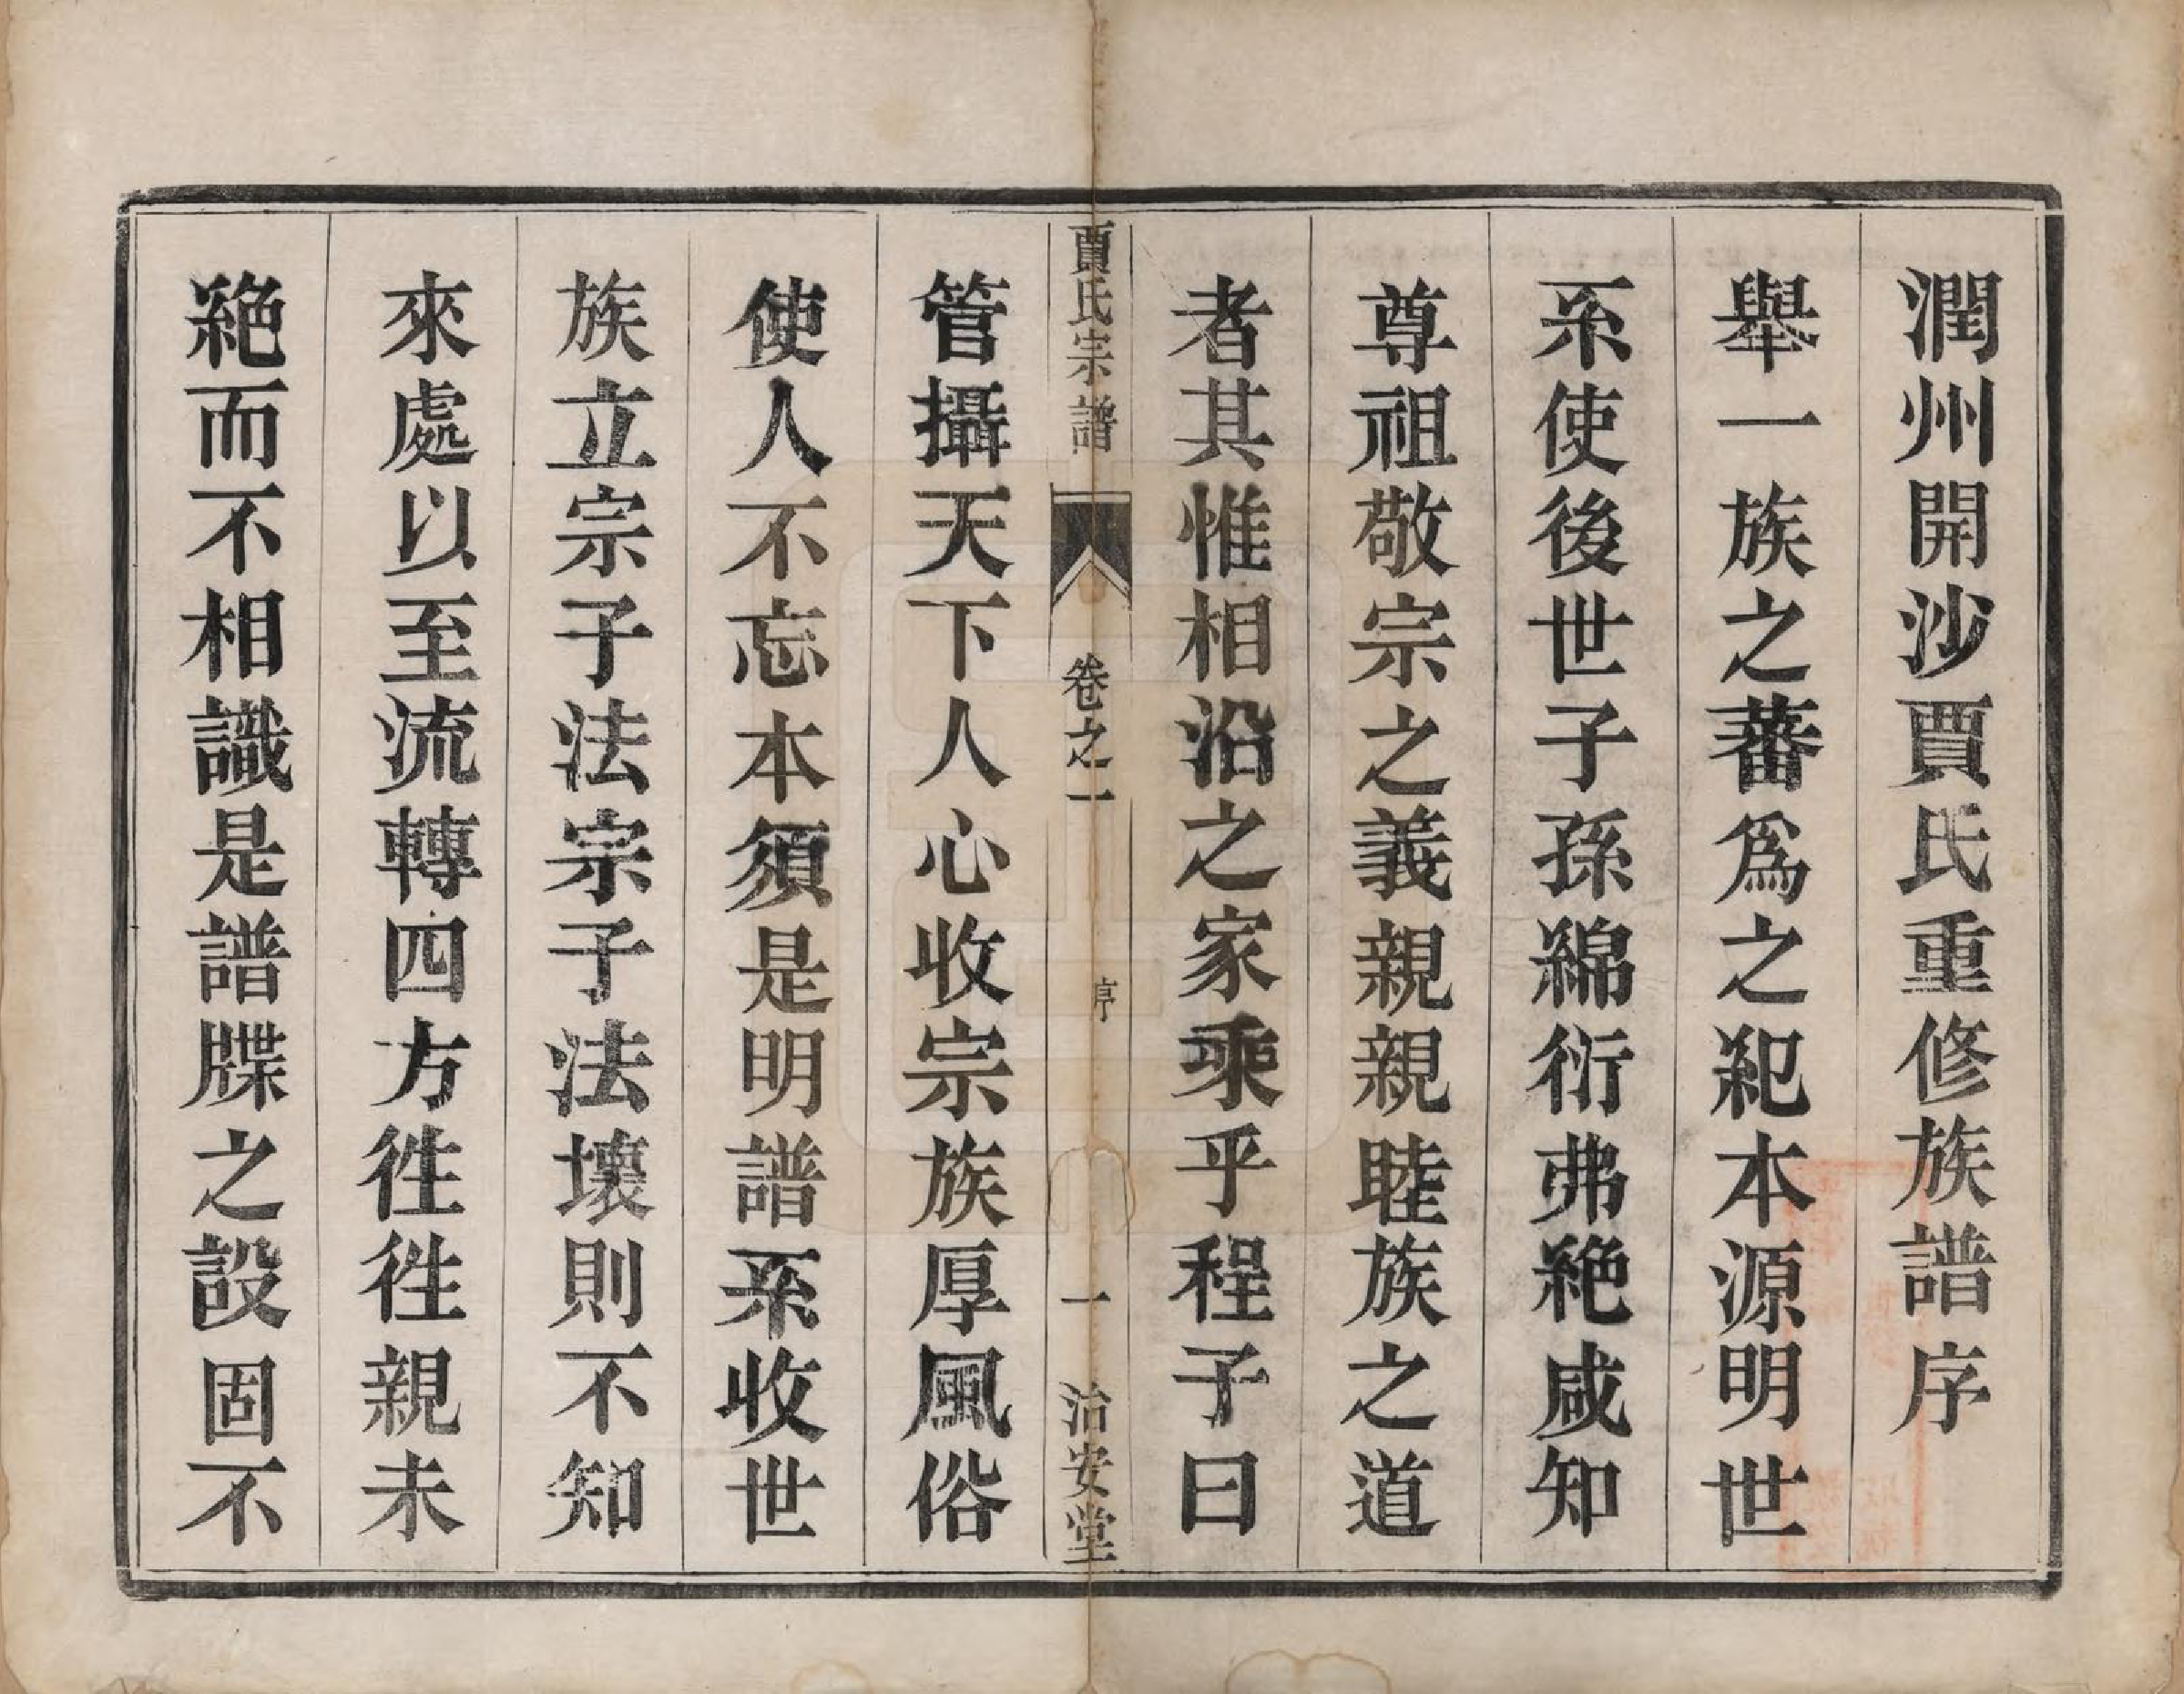 潤州開沙賈氏重修族譜序
舉一族之蕃爲之紀本源明世
系使後世子孫綿衍弗絶咸知
尊祖敬宗之義親親睦族之道
者其惟相沿之家乘乎程子曰
賈氏宗譜 卷之一 序 一 治安堂
管攝天下人心收宗族厚風俗
使人不忘本須是明譜系收世
族立宗子法宗子法壞則不知
來處以至流轉四方徃徃親未
絶而不相識是譜牒之設固不